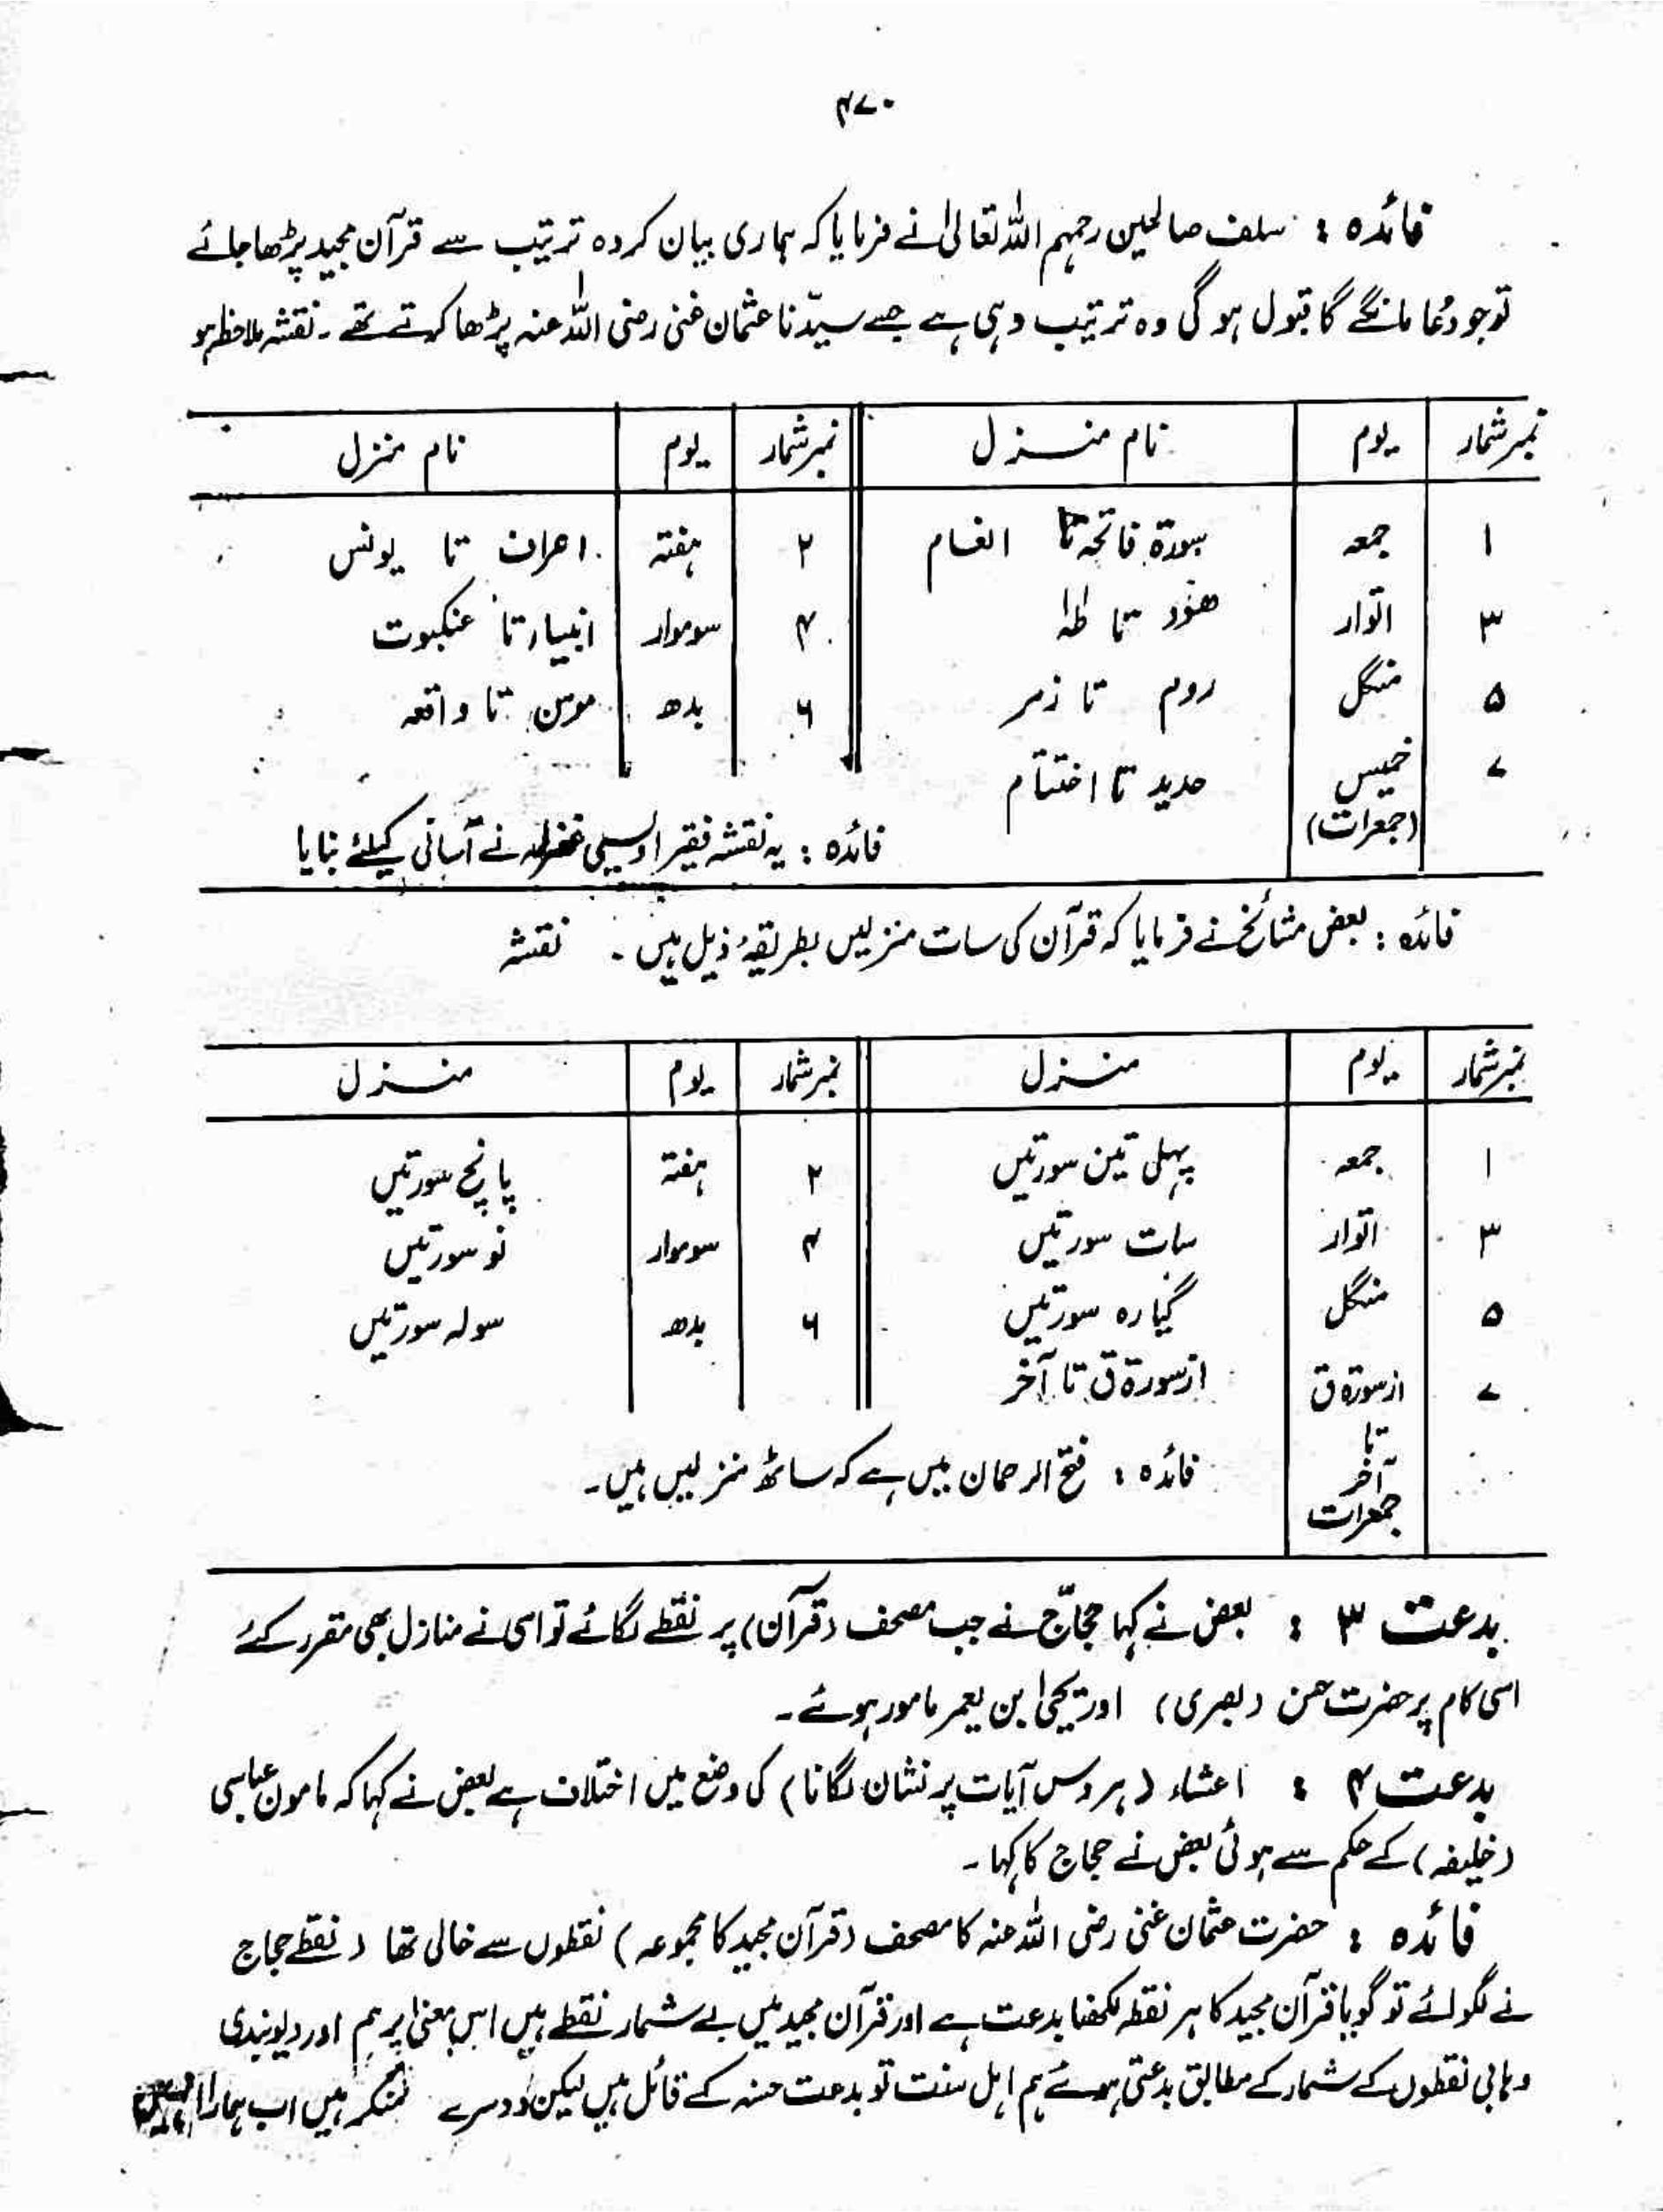 ۴۷۰
فائدہ : سلف صالحین رحمہم اللہ تعالیٰ نے فرمایا کہ ہماری بیان کردہ ترتیب سے قرآن مجید پڑھا جائے
تو جو دُعا مانگے گا قبول ہو گی وہ ترتیب وہی ہے جسے سیّدنا عثمان غنی رضی اللہ عنہ پڑھا کرتے تھے ۔ نقشہ ملاحظہ ہو
نمبر شمار | یوم | نام منزل | نمبر شمار | یوم | نام منزل
۱ | جمعہ | سورۃ فاتحہ تا انعام | ۲ | ہفتہ | اعراف تا یونس
۳ | اتوار | ھود تا طہٰ | ۴ | سوموار | انبیاء تا عنکبوت
۵ | منگل | روم تا زمر | ۶ | بدھ | مومن تا واقعہ
۷ | خمیس | حدید تا اختتام
(جمعرات)
فائدہ : یہ نقشہ فقیر اویسی غفرلہ نے آسانی کیلئے بنایا
فائدہ : بعض مشائخ نے فرمایا کہ قرآن کی سات منزلیں بطریقۂ ذیل ہیں ۔ نقشہ
نمبر شمار | یوم | منزل | نمبر شمار | یوم | منزل
۱ | جمعہ | پہلی تین سورتیں | ۲ | ہفتہ | پانچ سورتیں
۳ | اتوار | سات سورتیں | ۴ | سوموار | نو سورتیں
۵ | منگل | گیارہ سورتیں | ۶ | بدھ | سولہ سورتیں
۷ | از سورۃ ق | از سورۃ ق تا آخر
تا
آخر
جمعرات
فائدہ : فتح الرحمان میں ہے کہ ساٹھ منزلیں ہیں ۔
بدعت ۳ : بعض نے کہا حجاّج نے جب مصحف (قرآن) پر نقطے لگائے تو اسی نے منازل بھی مقرر کئے
اسی کام پر حضرت حسن (بصری) اور یحییٰ بن یعمر مامور ہوئے ۔
بدعت ۴ : اعشاء (ہر دس آیات پر نشان لگانا) کی وضع میں اختلاف ہے بعض نے کہا کہ مامون عباسی
(خلیفہ) کے حکم سے ہوئی بعض نے حجاج کا کہا ۔
فائدہ : حضرت عثمان غنی رضی اللہ عنہ کا مصحف (قرآن مجید کا مجموعہ) نقطوں سے خالی تھا (نقطے حجاج
نے لگوائے تو گویا قرآن مجید کا ہر نقطہ لکھنا بدعت ہے اور قرآن مجید میں بے شمار نقطے ہیں اس معنیٰ پر ہم اور دیوبندی
وہابی نقطوں کے شمار کے مطابق بدعتی ہوئے ہم اہل سنت تو بدعت حسنہ کے قائل ہیں لیکن دوسرے منکر ہیں اب ہمارا